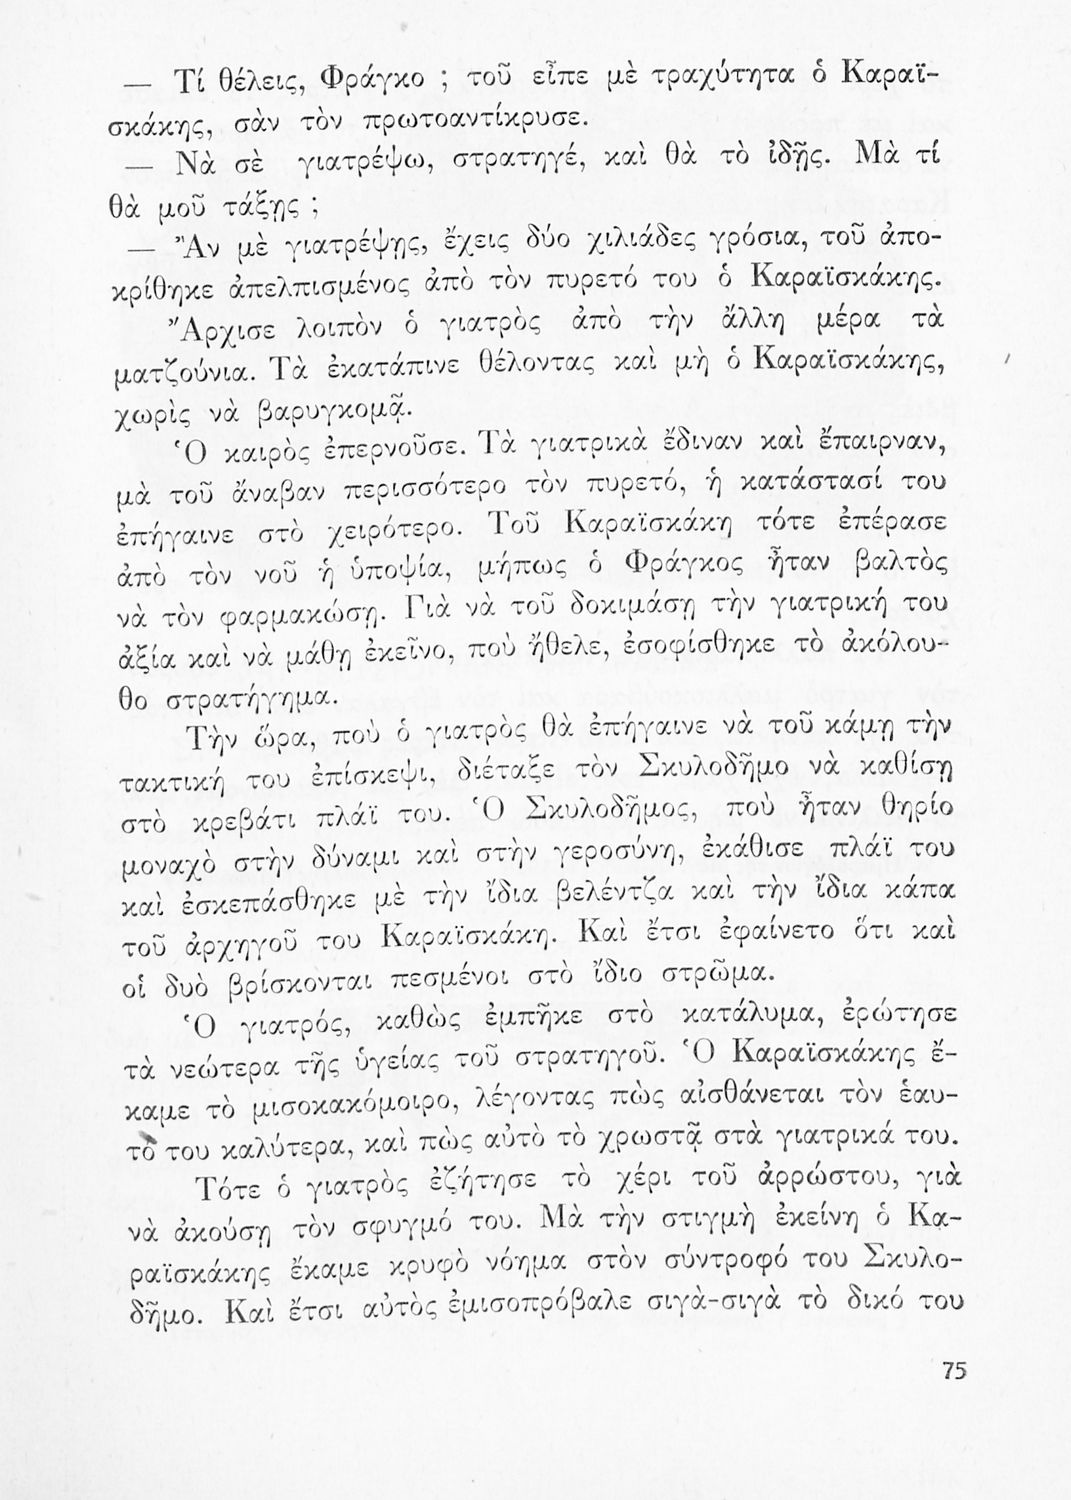 — Τί θέλεις, Φράγκο ; τοῦ εἶπε μὲ τραχύτητα ὁ Καραϊ-
σκάκης, σὰν τὸν πρωτοαντίκρυσε.
— Νὰ σὲ γιατρέψω, στρατηγέ, καὶ θὰ τὸ ἰδῇς. Μὰ τί
θὰ μοῦ τάξῃς ;
— Ἂν μὲ γιατρέψῃς, ἔχεις δύο χιλιάδες γρόσια, τοῦ ἀπο-
κρίθηκε ἀπελπισμένος ἀπὸ τὸν πυρετό του ὁ Καραϊσκάκης.
Ἄρχισε λοιπὸν ὁ γιατρὸς ἀπὸ τὴν ἄλλη μέρα τὰ
ματζούνια. Τὰ ἐκατάπινε θέλοντας καὶ μὴ ὁ Καραϊσκάκης,
χωρὶς νὰ βαρυγκομᾷ.
Ὁ καιρὸς ἐπερνοῦσε. Τὰ γιατρικὰ ἔδιναν καὶ ἔπαιρναν,
μὰ τοῦ ἄναβαν περισσότερο τὸν πυρετό, ἡ κατάστασί του
ἐπήγαινε στὸ χειρότερο. Τοῦ Καραϊσκάκη τότε ἐπέρασε
ἀπὸ τὸν νοῦ ἡ ὑποψία, μήπως ὁ Φράγκος ἦταν βαλτὸς
νὰ τὸν φαρμακώσῃ. Γιὰ νὰ τοῦ δοκιμάσῃ τὴν γιατρική του
ἀξία καὶ νὰ μάθῃ ἐκεῖνο, ποὺ ἤθελε, ἐσοφίσθηκε τὸ ἀκόλου-
θο στρατήγημα.
Τὴν ὥρα, ποὺ ὁ γιατρὸς θὰ ἐπήγαινε νὰ τοῦ κάμῃ τὴν
τακτική του ἐπίσκεψι, διέταξε τὸν Σκυλοδῆμο νὰ καθίσῃ
στὸ κρεβάτι πλάϊ του. Ὁ Σκυλοδῆμος, ποὺ ἦταν θηρίο
μοναχὸ στὴν δύναμι καὶ στὴν γεροσύνη, ἐκάθισε πλάϊ του
καὶ ἐσκεπάσθηκε μὲ τὴν ἴδια βελέντζα καὶ τὴν ἴδια κάπα
τοῦ ἀρχηγοῦ του Καραϊσκάκη. Καὶ ἔτσι ἐφαίνετο ὅτι καὶ
οἱ δυὸ βρίσκονται πεσμένοι στὸ ἴδιο στρῶμα.
Ὁ γιατρός, καθὼς ἐμπῆκε στὸ κατάλυμα, ἐρώτησε
τὰ νεώτερα τῆς ὑγείας τοῦ στρατηγοῦ. Ὁ Καραϊσκάκης ἔ-
καμε τὸ μισοκακόμοιρο, λέγοντας πὼς αἰσθάνεται τὸν ἑαυ-
τό του καλύτερα, καὶ πὼς αὐτὸ τὸ χρωστᾷ στὰ γιατρικά του.
Τότε ὁ γιατρὸς ἐζήτησε τὸ χέρι τοῦ ἀρρώστου, γιὰ
νὰ ἀκούσῃ τὸν σφυγμό του. Μὰ τὴν στιγμὴ ἐκείνη ὁ Κα-
ραϊσκάκης ἔκαμε κρυφὸ νόημα στὸν σύντροφό του Σκυλο-
δῆμο. Καὶ ἔτσι αὐτὸς ἐμισοπρόβαλε σιγὰ-σιγὰ τὸ δικό του
75